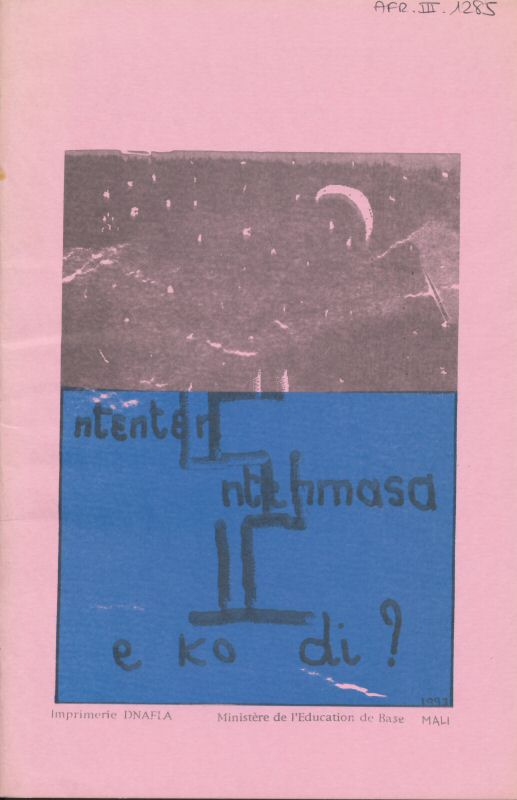 AFR. III. 1285
ntɛntɛn
ntɛnmasa
e ko di ?
1993
Imprimerie DNAFLA Ministère de l'Education de Base MALI